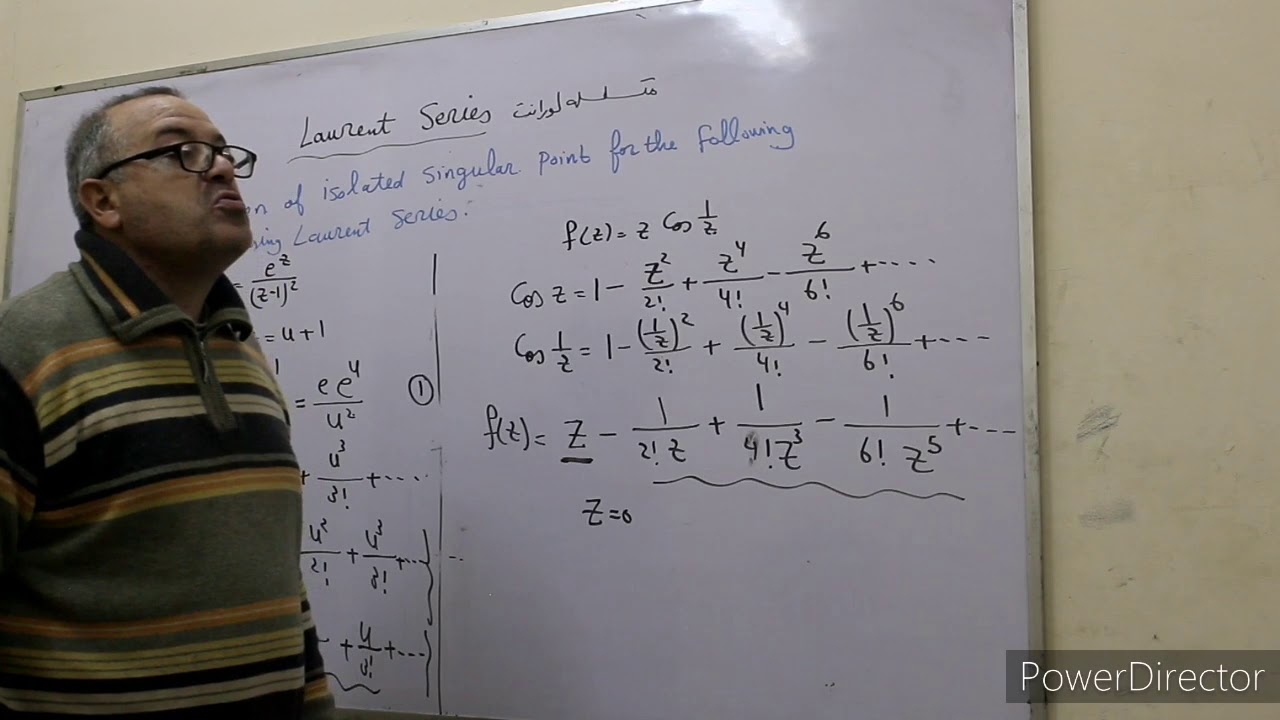 Laurent Series متسلسلة لورانت
of isolated singular point for the following
Laurent Series.
= e^z/(z-1)^2
= u+1
= e e^u/u^2 ①
+ u^3/3! + ....
u^2/2! + u^3/3! + ...
+ u/3! + ...
f(z) = z Cos 1/z
Cos z = 1 - z^2/2! + z^4/4! - z^6/6! + ....
Cos 1/z = 1 - (1/z)^2/2! + (1/z)^4/4! - (1/z)^6/6! + ...
f(z) = z - 1/2! z + 1/4! z^3 - 1/6! z^5 + ...
z=0
PowerDirector